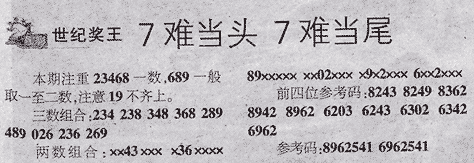 世纪奖王 7难当头 7难当尾
本期注重 23468 一数,689 一般
取一至二数,注意 19 不齐上。
三数组合:234 238 348 368 289
489 026 236 269
两数组合:xx43 xxx x36 xxxx
89xxxxx xx02xxx x9x2xxx 6xx2xxx
前四位参考码:8243 8249 8362
8942 8962 6203 6243 6302 6342
6962
参考码:8962541 6962541